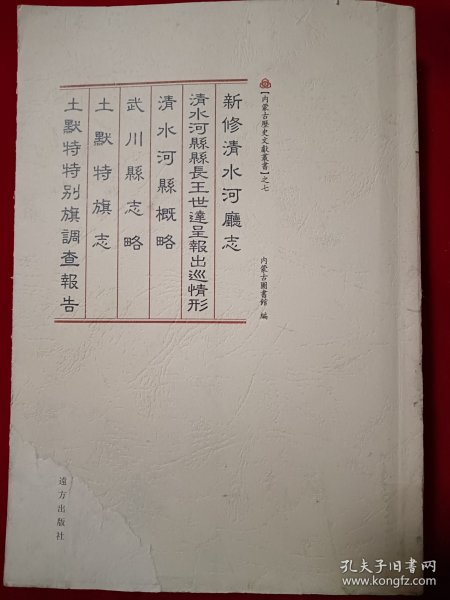 【内蒙古歷史文獻叢書】之七
内蒙古圖書館 編
新修清水河廳志
清水河縣縣長王世達呈報出巡情形
清水河縣概略
武川縣志略
土默特旗志
土默特特別旗調查報告
遠方出版社
孔夫子旧书网
www.kongfz.com